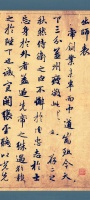 出師表
帝創業未半而中道崩殂今天
下三分益州疲敝
秋然侍衛之臣不懈於內忠志之士
忘身於外者蓋追先帝之殊遇欲報
之於陛下也誠宜開張聖聽以光先